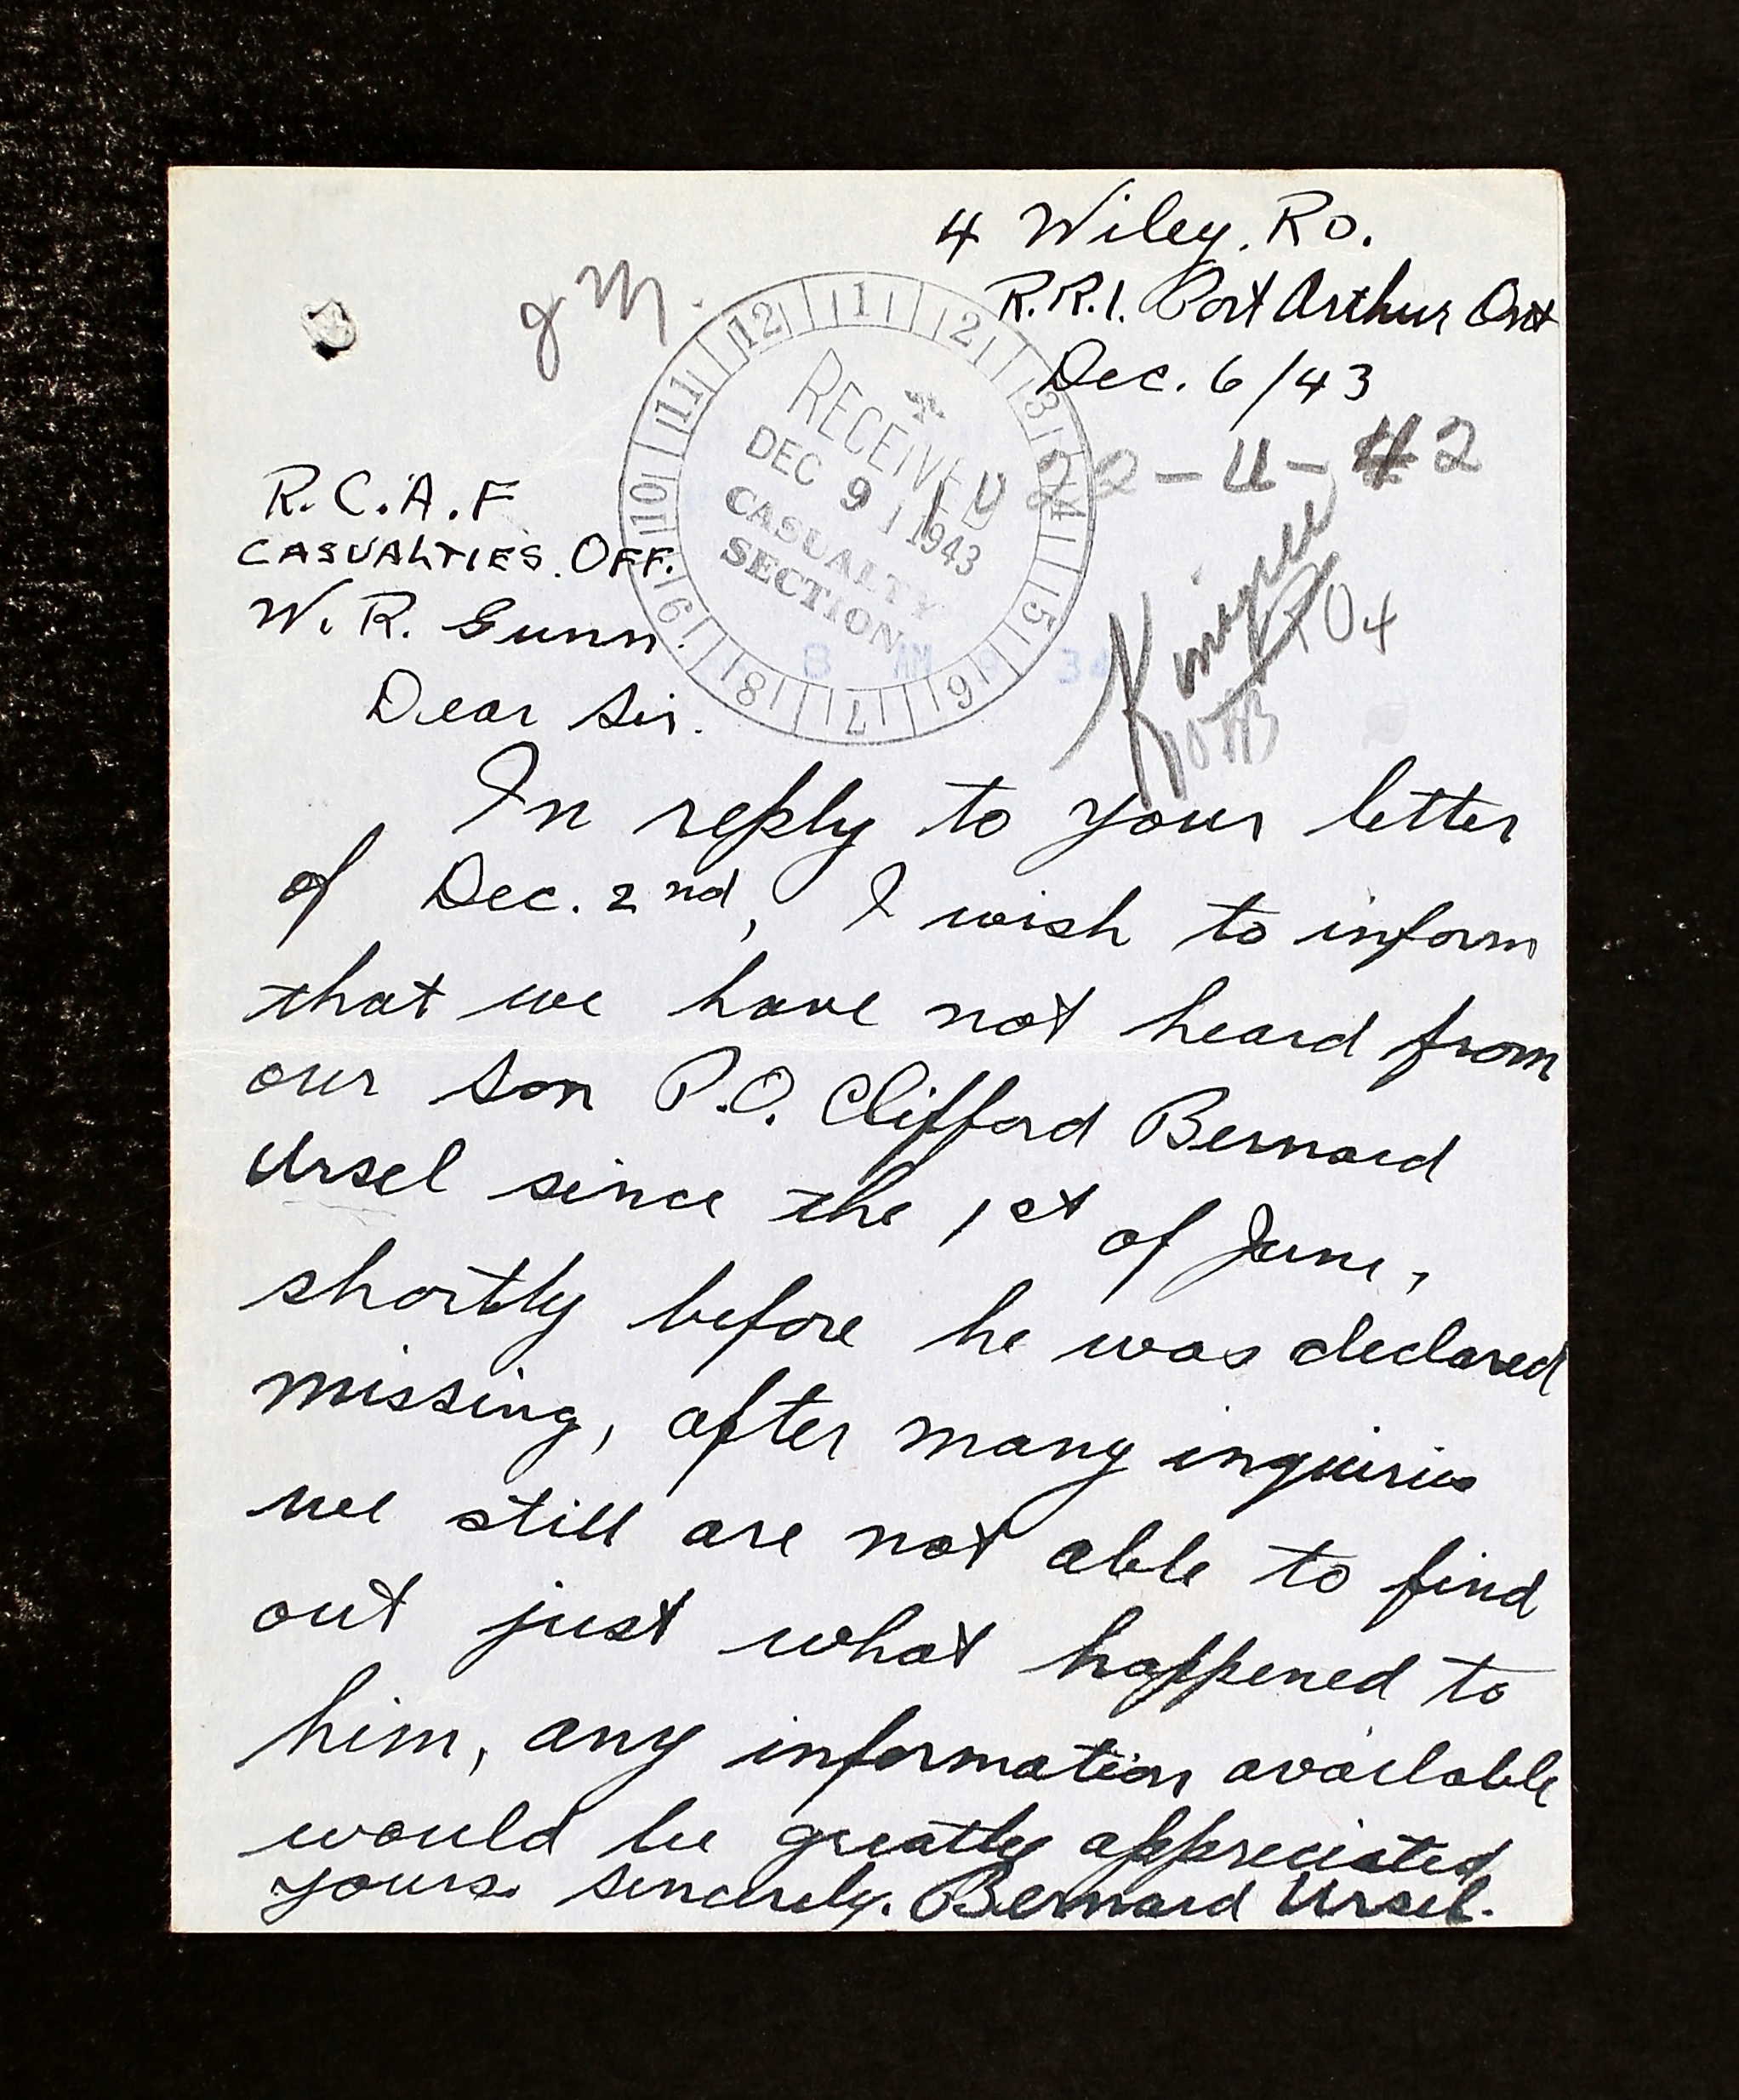 4 Wiley. Rd.
R.R.1. Port Arthur Ont
Dec. 6/43
J M.
12 1 2 3 4 5 6 7 8 9 10 11
RECEIVED
DEC 9 1943
CASUALTY
SECTION
8 AM
22-U-42
R.C.A.F
CASUALTIES. OFF.
W. R. Gunn.
Dear Sir.
In reply to your letter
of Dec. 2nd, I wish to inform
that we have not heard from
our son P.O. Clifford Bernard
Ursel since the 1st of June,
shortly before he was declared
missing, after many inquiries
we still are not able to find
out just what happened to
him, any information available
would be greatly appreciated
yours. sincerely. Bernard Ursel.